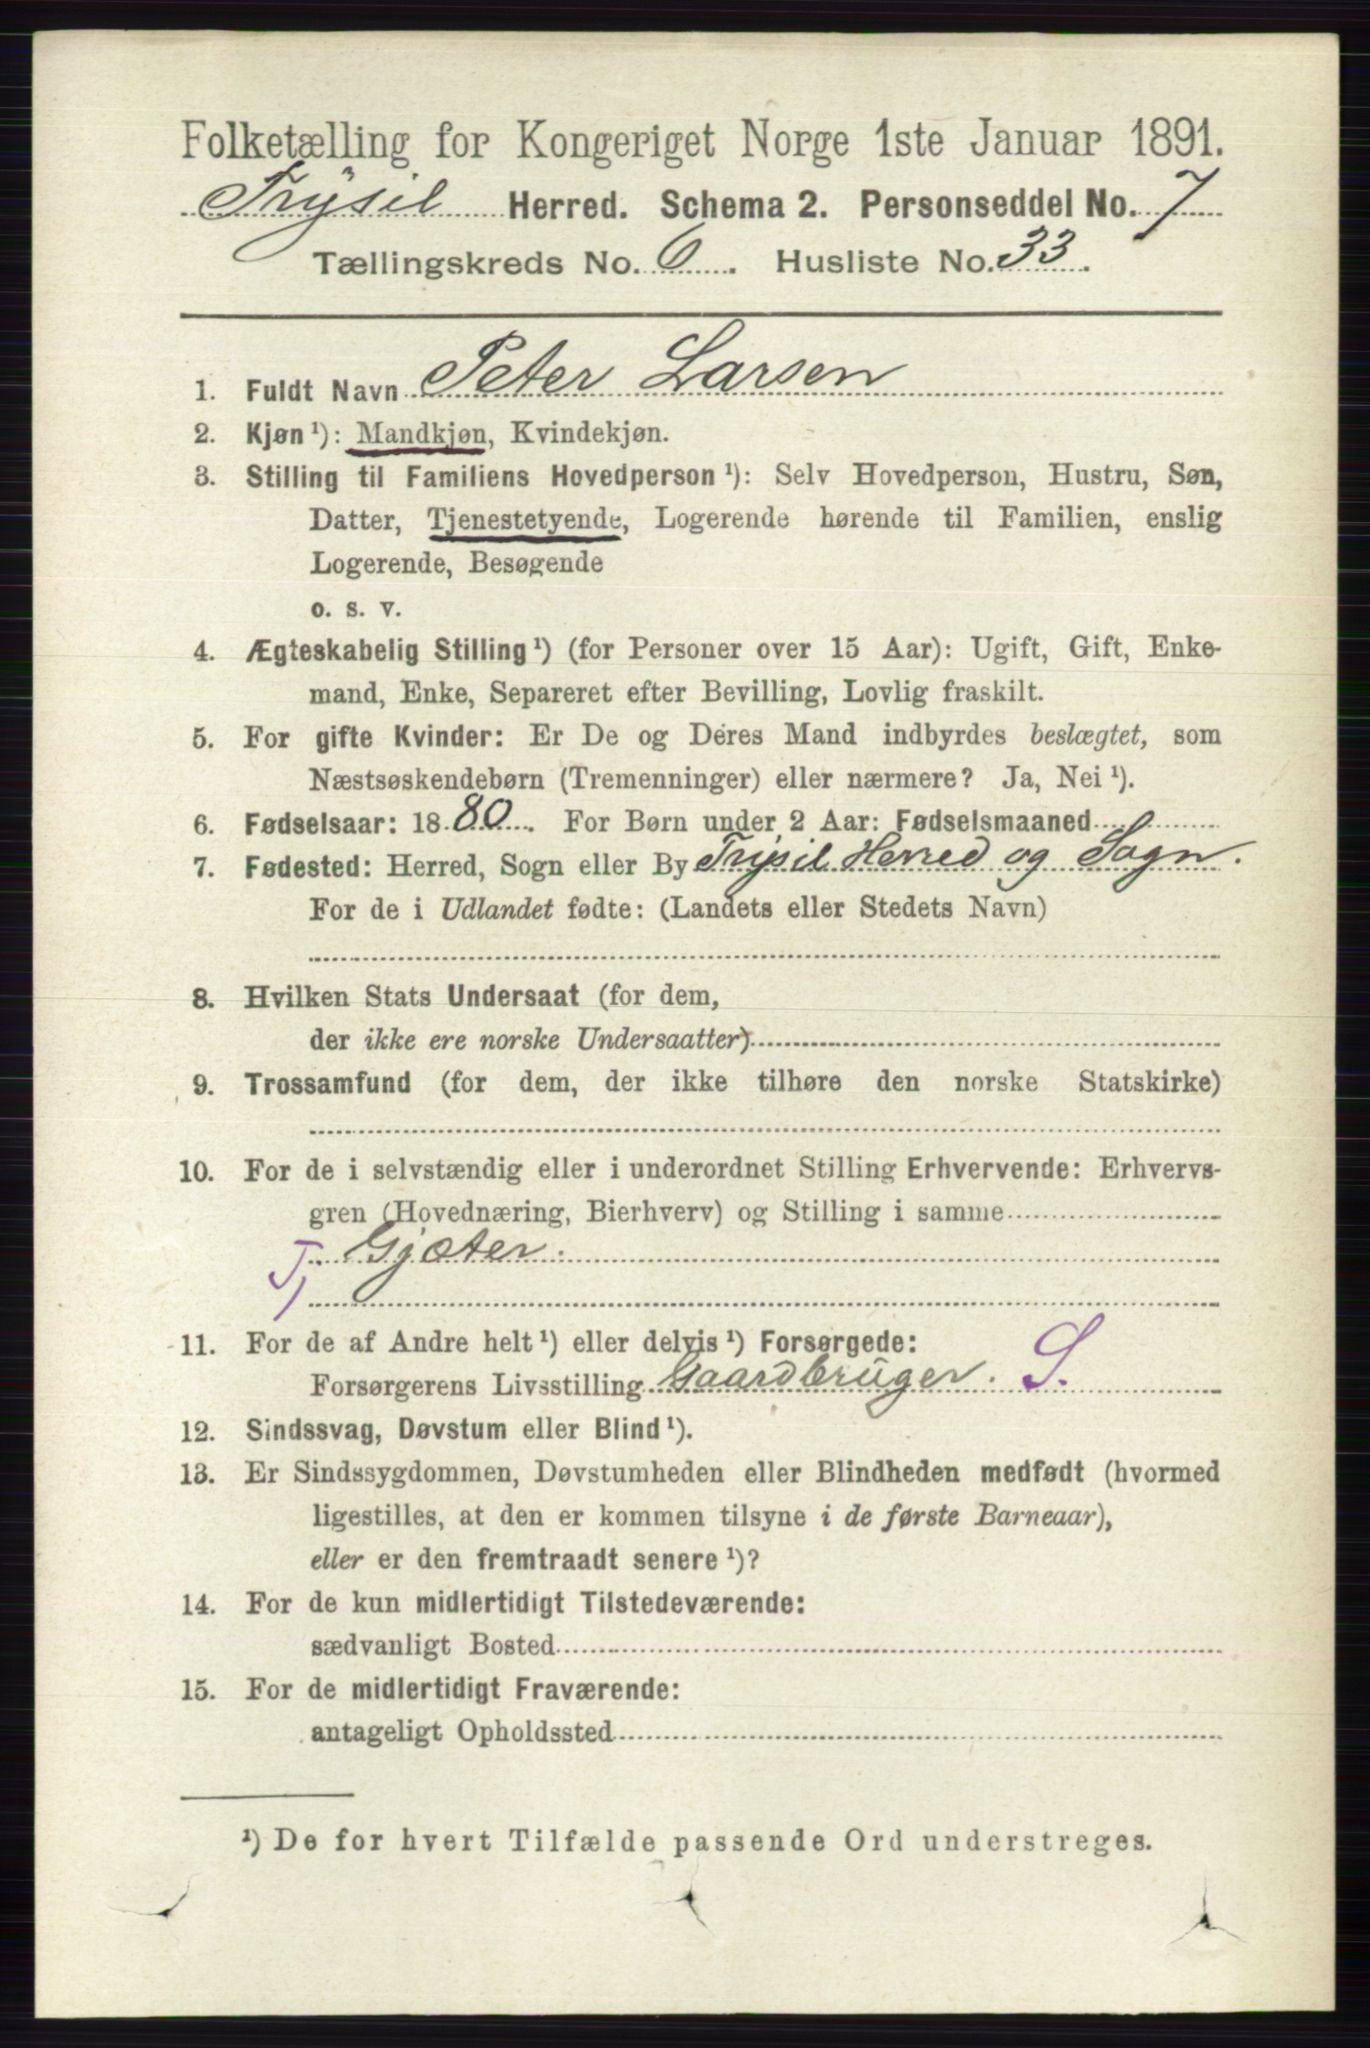 Folketælling for Kongeriget Norge 1ste Januar 1891.
Trysil Herred. Schema 2. Personseddel No. 7
Tællingskreds No. 6. Husliste No. 33.
1. Fuldt Navn Peter Larsen
2. Kjøn ¹): Mandkjøn, Kvindekjøn.
3. Stilling til Familiens Hovedperson ¹): Selv Hovedperson, Hustru, Søn,
Datter, Tjenestetyende, Logerende hørende til Familien, enslig
Logerende, Besøgende
o. s. v.
4. Ægteskabelig Stilling ¹) (for Personer over 15 Aar): Ugift, Gift, Enke-
mand, Enke, Separeret efter Bevilling, Lovlig fraskilt.
5. For gifte Kvinder: Er De og Deres Mand indbyrdes beslægtet, som
Næstsøskendebørn (Tremenninger) eller nærmere? Ja, Nei ¹).
6. Fødselsaar: 1880. For Børn under 2 Aar: Fødselsmaaned
7. Fødested: Herred, Sogn eller By Trysil Herred og Sogn.
For de i Udlandet fødte: (Landets eller Stedets Navn)
8. Hvilken Stats Undersaat (for dem,
der ikke ere norske Undersaatter)
9. Trossamfund (for dem, der ikke tilhøre den norske Statskirke)
10. For de i selvstændig eller i underordnet Stilling Erhvervende: Erhvervs-
gren (Hovednæring, Bierhverv) og Stilling i samme
Tj Gjæter.
11. For de af Andre helt ¹) eller delvis ¹) Forsørgede:
Forsørgerens Livsstilling Gaardbruger. S.
12. Sindssvag, Døvstum eller Blind ¹).
13. Er Sindssygdommen, Døvstumheden eller Blindheden medfødt (hvormed
ligestilles, at den er kommen tilsyne i de første Barneaar),
eller er den fremtraadt senere ¹)?
14. For de kun midlertidigt Tilstedeværende:
sædvanligt Bosted
15. For de midlertidigt Fraværende:
antageligt Opholdssted
¹) De for hvert Tilfælde passende Ord understreges.